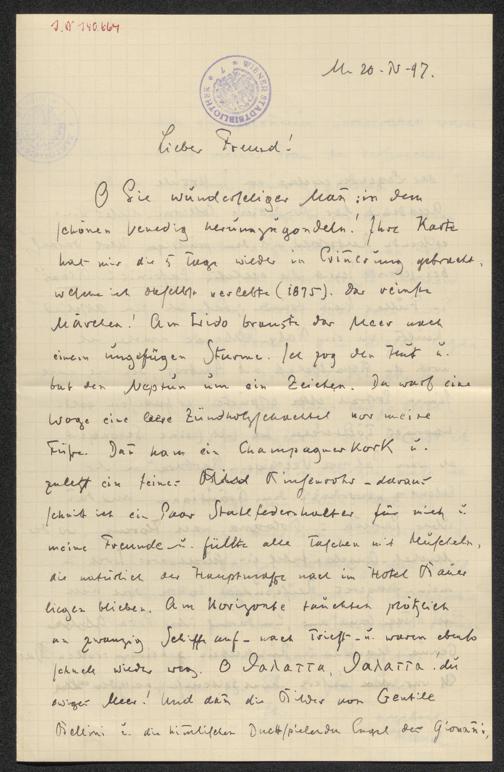 J.N 140.664
WIENER STADTBIBLIOTHEK
M. 20-IV-97.
Lieber Freund!
O Sie wunderseliger Mañ, in dem
schönen Venedig herumzugondeln! Ihre Karte
hat mir die 5 Tage wieder in Erinerung gebracht,
welche ich daselbst verlebte (1875). Das reinste
Märchen! Am Lido brauste das Meer nach
einem ungefügen Sturme. Ich zog den Hut u.
bat den Neptun um ein Zeichen. Da warf eine
Woge eine leere Zündholzschachtel vor meine
Füße. Dañ kam ein Champagnerkork u.
zuletzt ein feines Binsenrohr - daraus
schnitt ich ein Paar Stahlfederhalter für mich u
meine Freunde u. füllte alle Taschen mit Muscheln,
die natürlich der Hauptmasse nach im Hotel Bauer
liegen blieben. Am Horizonte tauchten plötzlich
an zwanzig Schiffe auf - nach Triest - u. waren ebenso
schnell wieder weg. O Θαλαττα, Θαλαττα du
ewiges Meer! Und dañ die Bilder von Gentile
Bellini u. die himlischen Duettspielenden Engel des Giovanni,